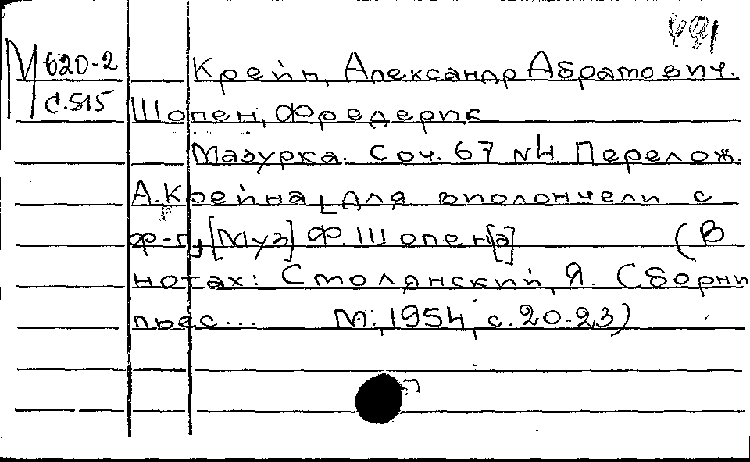 491
М 620-2
с.515
Крейн, Александр Абрамович.
Шопен, Фредерик
Мазурка. Соч. 67 №4 Перелож.
А.Крейна [для виолончели с
ф-п] [Муз] Ф.Шопен[а] (В
нотах: Столянский, Я. Сборни
пьес... М., 1954, с.20-23)